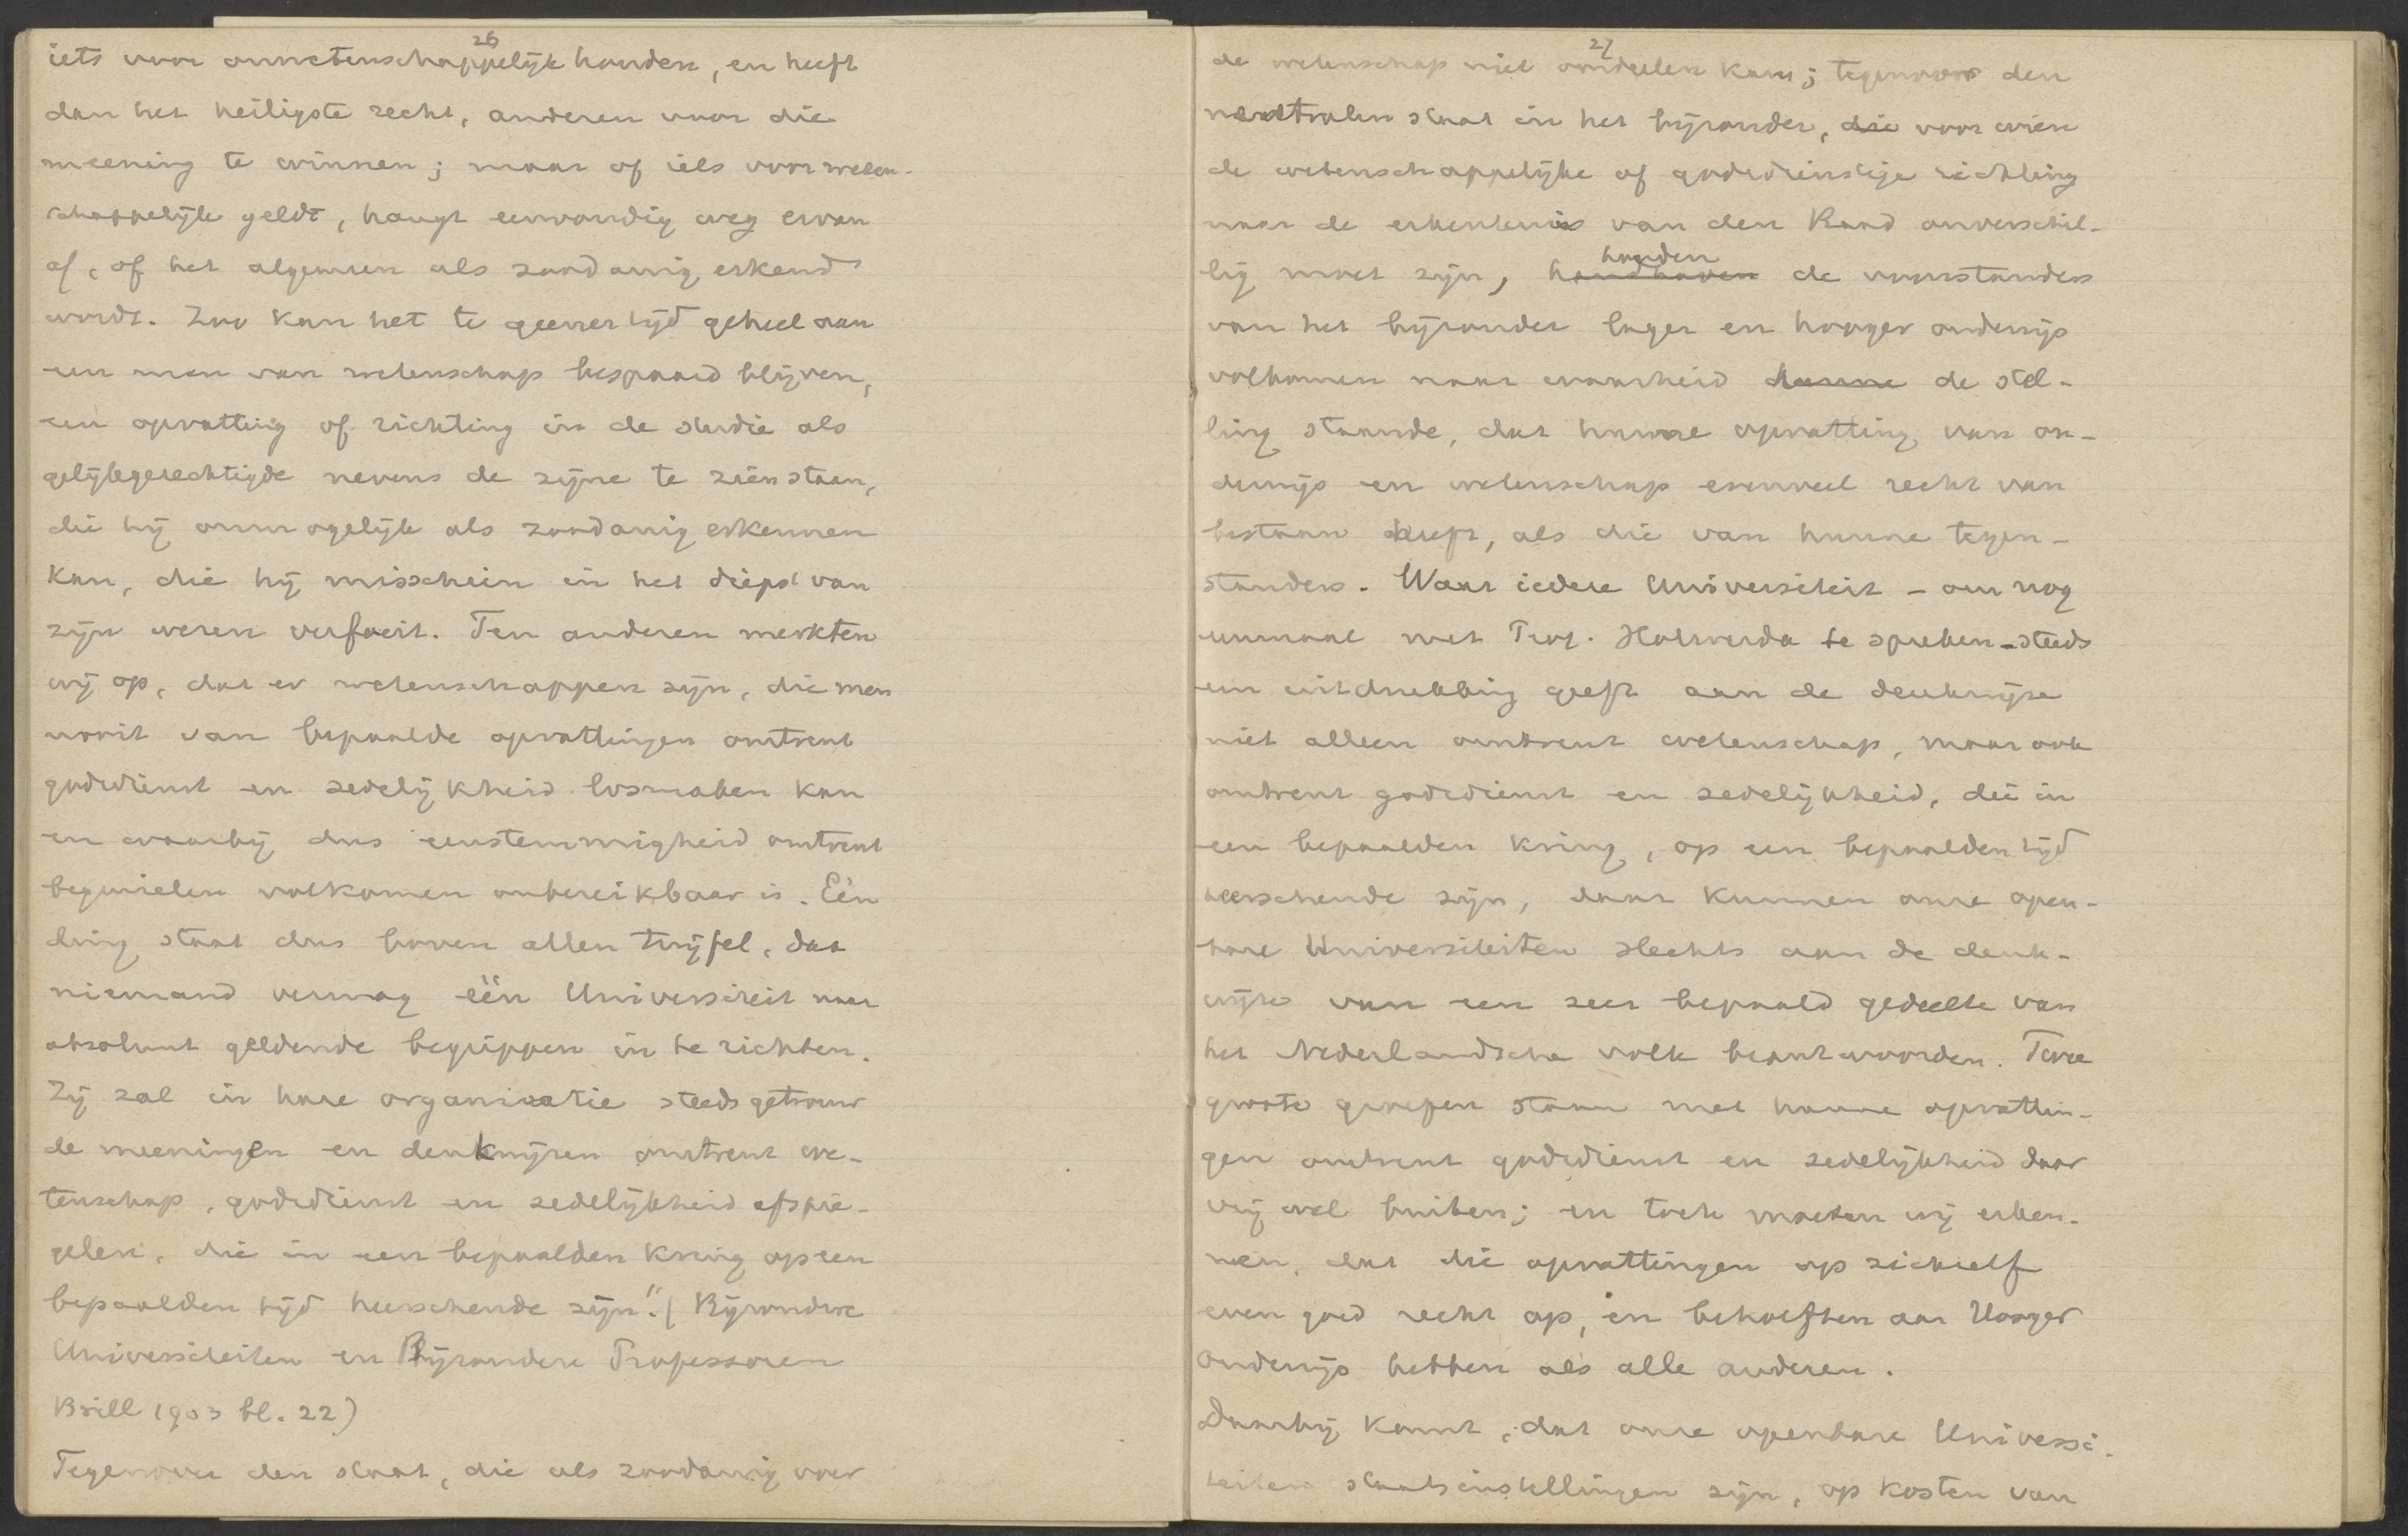 26
iets voor onwetenschappelijk houden, en heeft
dan het heiligste recht, anderen voor die
meening te winnen; maar of iets voor weten-
schappelijk geldt, hangt eenvoudig weg ervan
af, of het algemeen als zoodanig erkend
wordt. Zoo kan het te geener tijd geheel aan
een man van wetenschap bespaard blijven,
een opvatting of richting in de studie als
gelijkgerechtigde nevens de zijne te zien staan,
die hij onmogelijk als zoodanig erkennen
kan, die hij misschien in het diepst van
zijn wezen verfoeit. Ten anderen merkten
wij op, dat er wetenschappen zijn, die men
nooit van bepaalde opvattingen omtrent
godsdienst en zedelijkheid losmaken kan
en waarbij dus eenstemmigheid omtrent
beginselen volkomen onbereikbaar is. Eén
ding staat dus boven allen twijfel, dat
niemand vermag één Universiteit naar
absoluut geldende begrippen in te richten.
Zij zal in hare organisatie steeds getrouw
de meeningen en denkwijzen omtrent we-
tenschap, godsdienst en zedelijkheid afspie-
gelen, die in een bepaalden kring op een
bepaalden tijd heerschende zijn". (Bijzondere
Universiteiten en Bijzondere Professoren
Brill 1903 bl. 22)
Tegenover den staat, die als zoodanig over
27
de wetenschap niet oordeelen kan; tegenover den
neutralen staat in het bijzonder, die voor wien
de wetenschappelijke of godsdienstige richting
naar de erkentenis van den Raad onverschil-
lig moet zijn, handhaven houden de voorstanders
van het bijzonder lager en hooger onderwijs
volkomen naar waarheid hunne de stel-
ling staande, dat hunne opvatting van on-
derwijs en wetenschap evenveel recht van
bestaan heeft, als die van hunne tegen-
standers. Waar iedere Universiteit - om nog
eenmaal met Prof. Holwerda te spreken - steeds
een uitdrukking geeft aan de denkwijze
niet alleen omtrent wetenschap, maar ook
omtrent godsdienst en zedelijkheid, die in
een bepaalden kring, op een bepaalden tijd
heerschende zijn, daar kunnen onze open-
bare Universiteiten slechts aan de denk-
wijze van een zeer bepaald gedeelte van
het Nederlandsche volk beantwoorden. Twee
groote groepen staan met hunne opvattin-
gen omtrent godsdienst en zedelijkheid daar
vrij wel buiten; en toch moeten wij erken-
nen, dat die opvattingen op zichzelf
even goed recht op, en behoeften aan Hooger
Onderwijs hebben als alle anderen.
Daarbij komt, dat onze openbare Universi-
teiten staatsinstellingen zijn, op kosten van